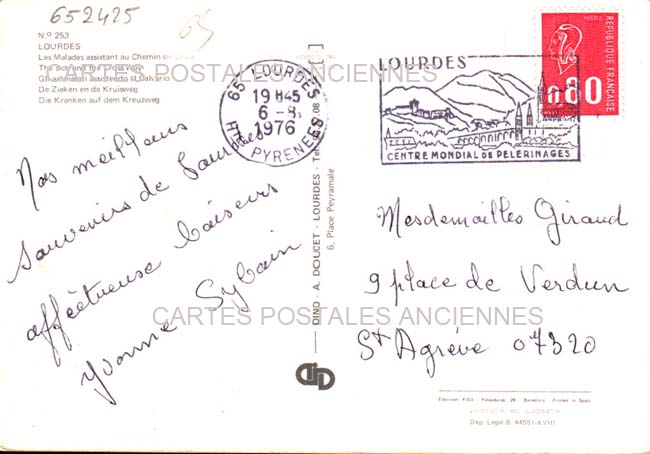 652425
65
N.º 253
LOURDES
Les Malades assistant au Chemin de Croix
The sick and the Cross Way
Gli ammalati assistendo al Calvario
De Zieken en de Kruisweg
Die Kranken auf dem Kreuzweg
CARTES POSTALES ANCIENNES
65 LOURDES
19 H45
6 - 8
1976
HTES PYRENEES
LOURDES
CENTRE MONDIAL DE PELERINAGES
POSTES
REPUBLIQUE FRANÇAISE
0.80
Nos meilleurs
souvenirs de Lourdes
affectueuse baisers
Yvonne Sylvain
DINO - A. DOUCET - LOURDES - Tel.
6, Place Peyramale
Mesdemailles Giraud
9 place de Verdun
St Agrève 07320
CARTES POSTALES ANCIENNES
DID
Ediciones FISA - Palaudarias, 26 - Barcelona Printed in Spain
Dep. Legal B. 44551-XVIII